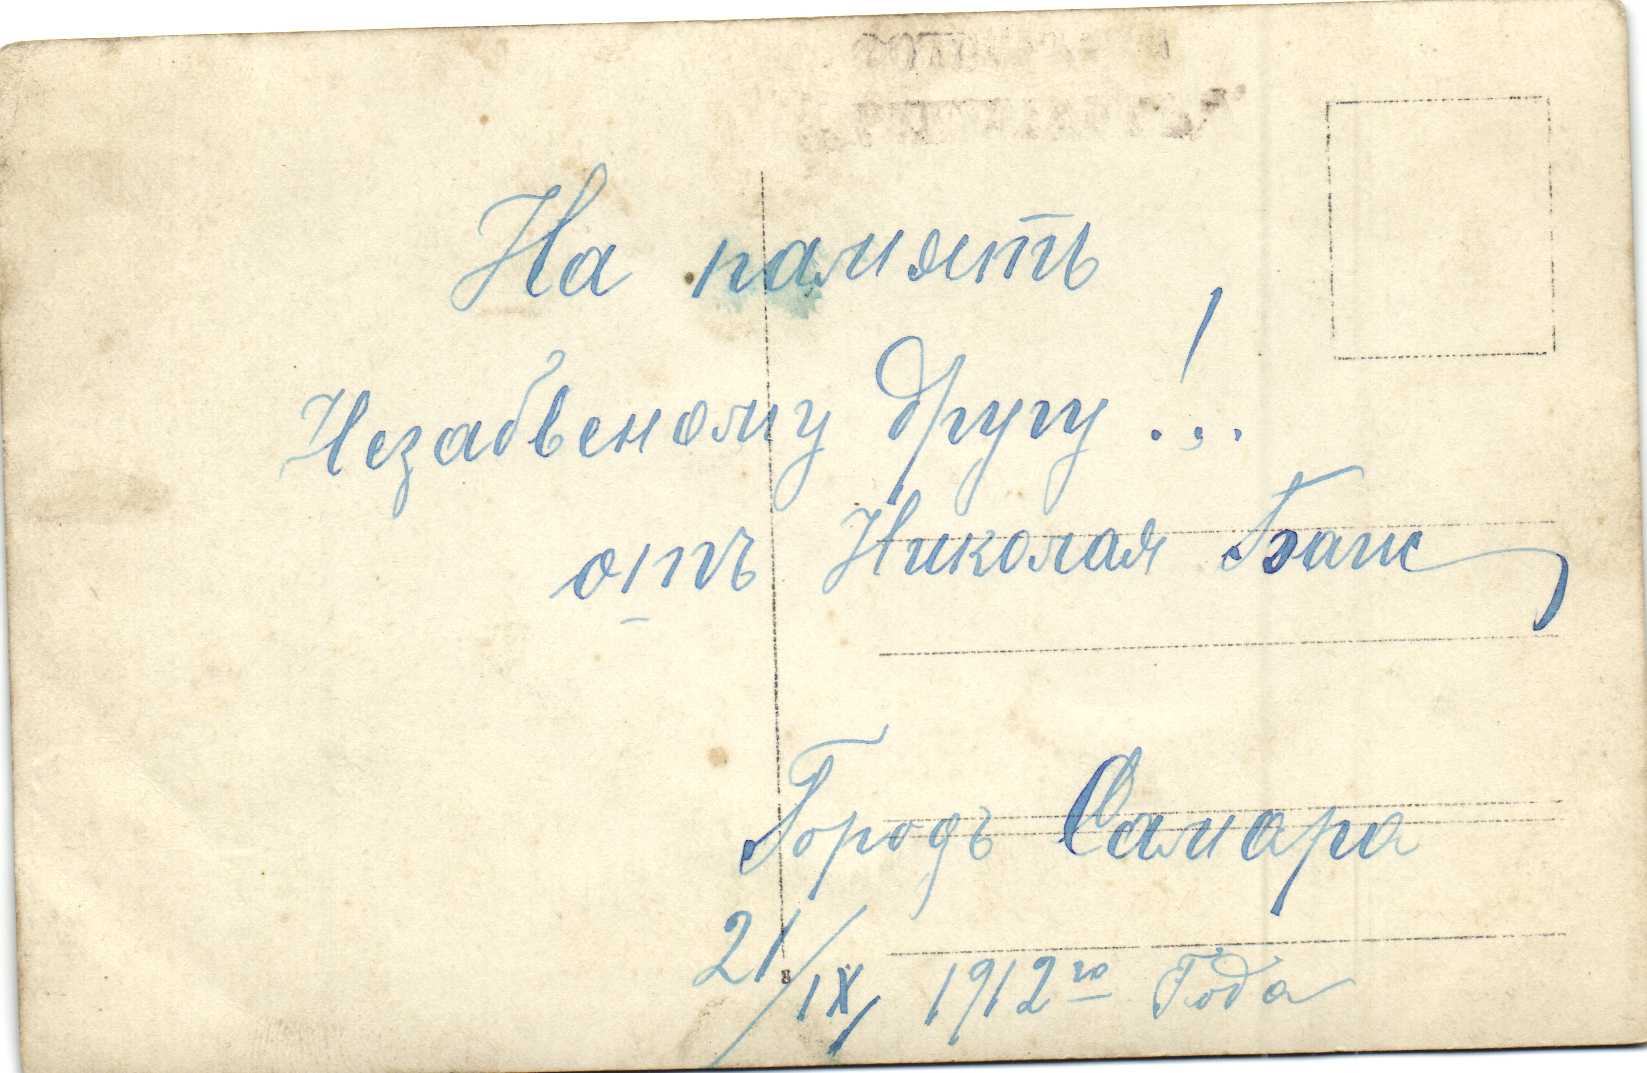 На память
Незабвеному другу!...
отъ Николая
Городъ Самара
21/IX 1912го Года